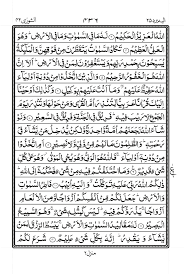 الشورى ٤٢
اليه يرد ٢٥
اللهُ الْعَزِيْزُ الْحَكِيْمُ لَهٗ مَا فِي السَّمٰوٰتِ وَمَا فِي الْاَرْضِ وَهُوَ
الْعَلِيُّ الْعَظِيْمُ تَكَادُ السَّمٰوٰتُ يَتَفَطَّرْنَ مِنْ فَوْقِهِنَّ وَالْمَلٰٓئِكَةُ
يُسَبِّحُوْنَ بِحَمْدِ رَبِّهِمْ وَيَسْتَغْفِرُوْنَ لِمَنْ فِي الْاَرْضِ اَلَآ اِنَّ
اللهَ هُوَ الْغَفُوْرُ الرَّحِيْمُ وَالَّذِيْنَ اتَّخَذُوْا مِنْ دُوْنِهٖٓ اَوْلِيَآءَ
اللهُ حَفِيْظٌ عَلَيْهِمْ وَمَآ اَنْتَ عَلَيْهِمْ بِوَكِيْلٍ وَكَذٰلِكَ اَوْحَيْنَآ
اِلَيْكَ قُرْاٰنًا عَرَبِيًّا لِّتُنْذِرَ اُمَّ الْقُرٰى وَمَنْ حَوْلَهَا وَتُنْذِرَ يَوْمَ
الْجَمْعِ لَا رَيْبَ فِيْهِ فَرِيْقٌ فِي الْجَنَّةِ وَفَرِيْقٌ فِي السَّعِيْرِ وَلَوْ
شَآءَ اللهُ لَجَعَلَهُمْ اُمَّةً وَّاحِدَةً وَّلٰكِنْ يُّدْخِلُ مَنْ يَّشَآءُ فِيْ
رَحْمَتِهٖ وَالظّٰلِمُوْنَ مَا لَهُمْ مِّنْ وَّلِيٍّ وَّلَا نَصِيْرٍ اَمِ اتَّخَذُوْا
مِنْ دُوْنِهٖٓ اَوْلِيَآءَ فَاللهُ هُوَ الْوَلِيُّ وَهُوَ يُحْيِ الْمَوْتٰى وَهُوَ عَلٰى كُلِّ
شَيْءٍ قَدِيْرٌ وَمَا اخْتَلَفْتُمْ فِيْهِ مِنْ شَيْءٍ فَحُكْمُهٗٓ اِلَى اللهِ
ذٰلِكُمُ اللهُ رَبِّيْ عَلَيْهِ تَوَكَّلْتُ وَاِلَيْهِ اُنِيْبُ فَاطِرُ السَّمٰوٰتِ
وَالْاَرْضِ جَعَلَ لَكُمْ مِّنْ اَنْفُسِكُمْ اَزْوَاجًا وَّمِنَ الْاَنْعَامِ
اَزْوَاجًا يَذْرَؤُكُمْ فِيْهِ لَيْسَ كَمِثْلِهٖ شَيْءٌ وَهُوَ السَّمِيْعُ
الْبَصِيْرُ لَهٗ مَقَالِيْدُ السَّمٰوٰتِ وَالْاَرْضِ يَبْسُطُ الرِّزْقَ لِمَنْ
يَّشَآءُ وَيَقْدِرُ اِنَّهٗ بِكُلِّ شَيْءٍ عَلِيْمٌ شَرَعَ لَكُمْ